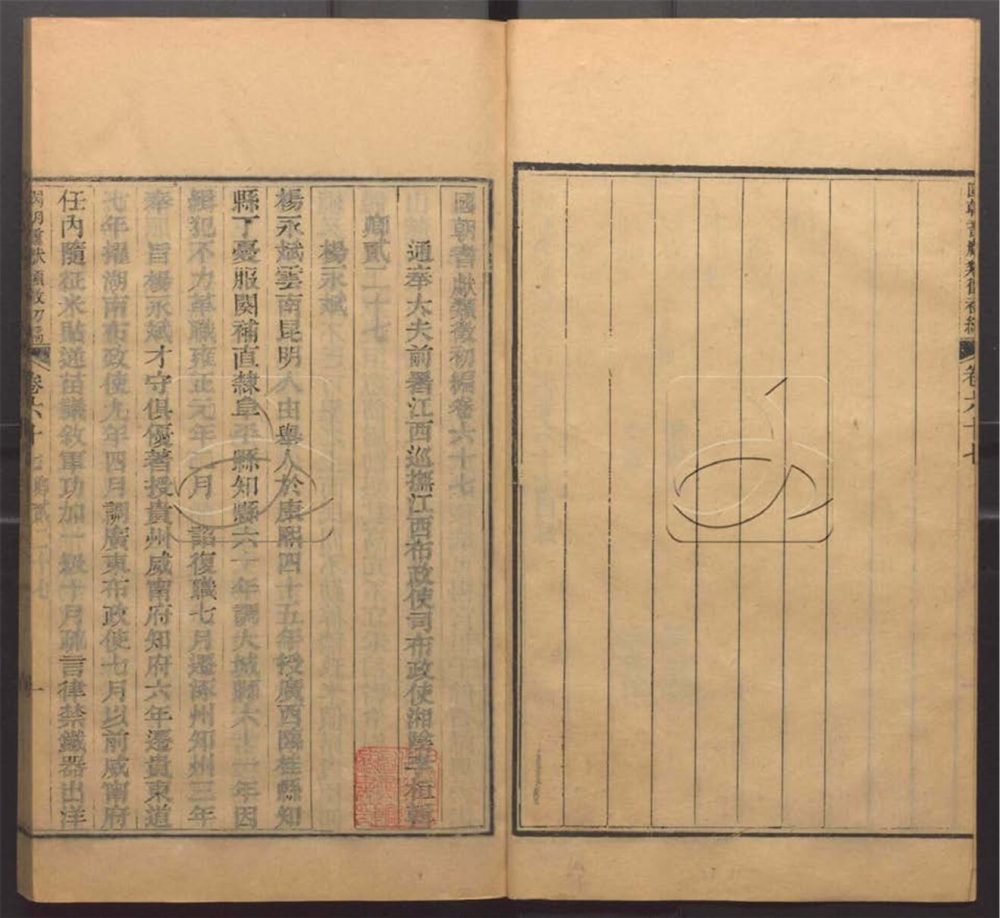 國朝耆獻類徵初編卷六十七
國朝耆獻類徵初編卷六十七
通奉大夫前署江西巡撫江西布政使司布政使湘陰李桓輯
卿貳二十七
楊永斌
楊永斌雲南昆明人由舉人於康熙四十五年授廣西臨桂縣知
縣丁憂服闋補直隸阜平縣知縣六十年調大城縣六十一年因
緝犯不力革職雍正元年二月詔復職七月遷涿州知州三年
奉旨楊永斌才守俱優著授貴州威甯府知府六年遷貴東道
七年擢湖南布政使九年四月調廣東布政使七月以前威甯府
任內隨征米貼逆苗議敘軍功加一級十月疏言律禁鐵器出洋
卷六十七 卿貳二十七 一